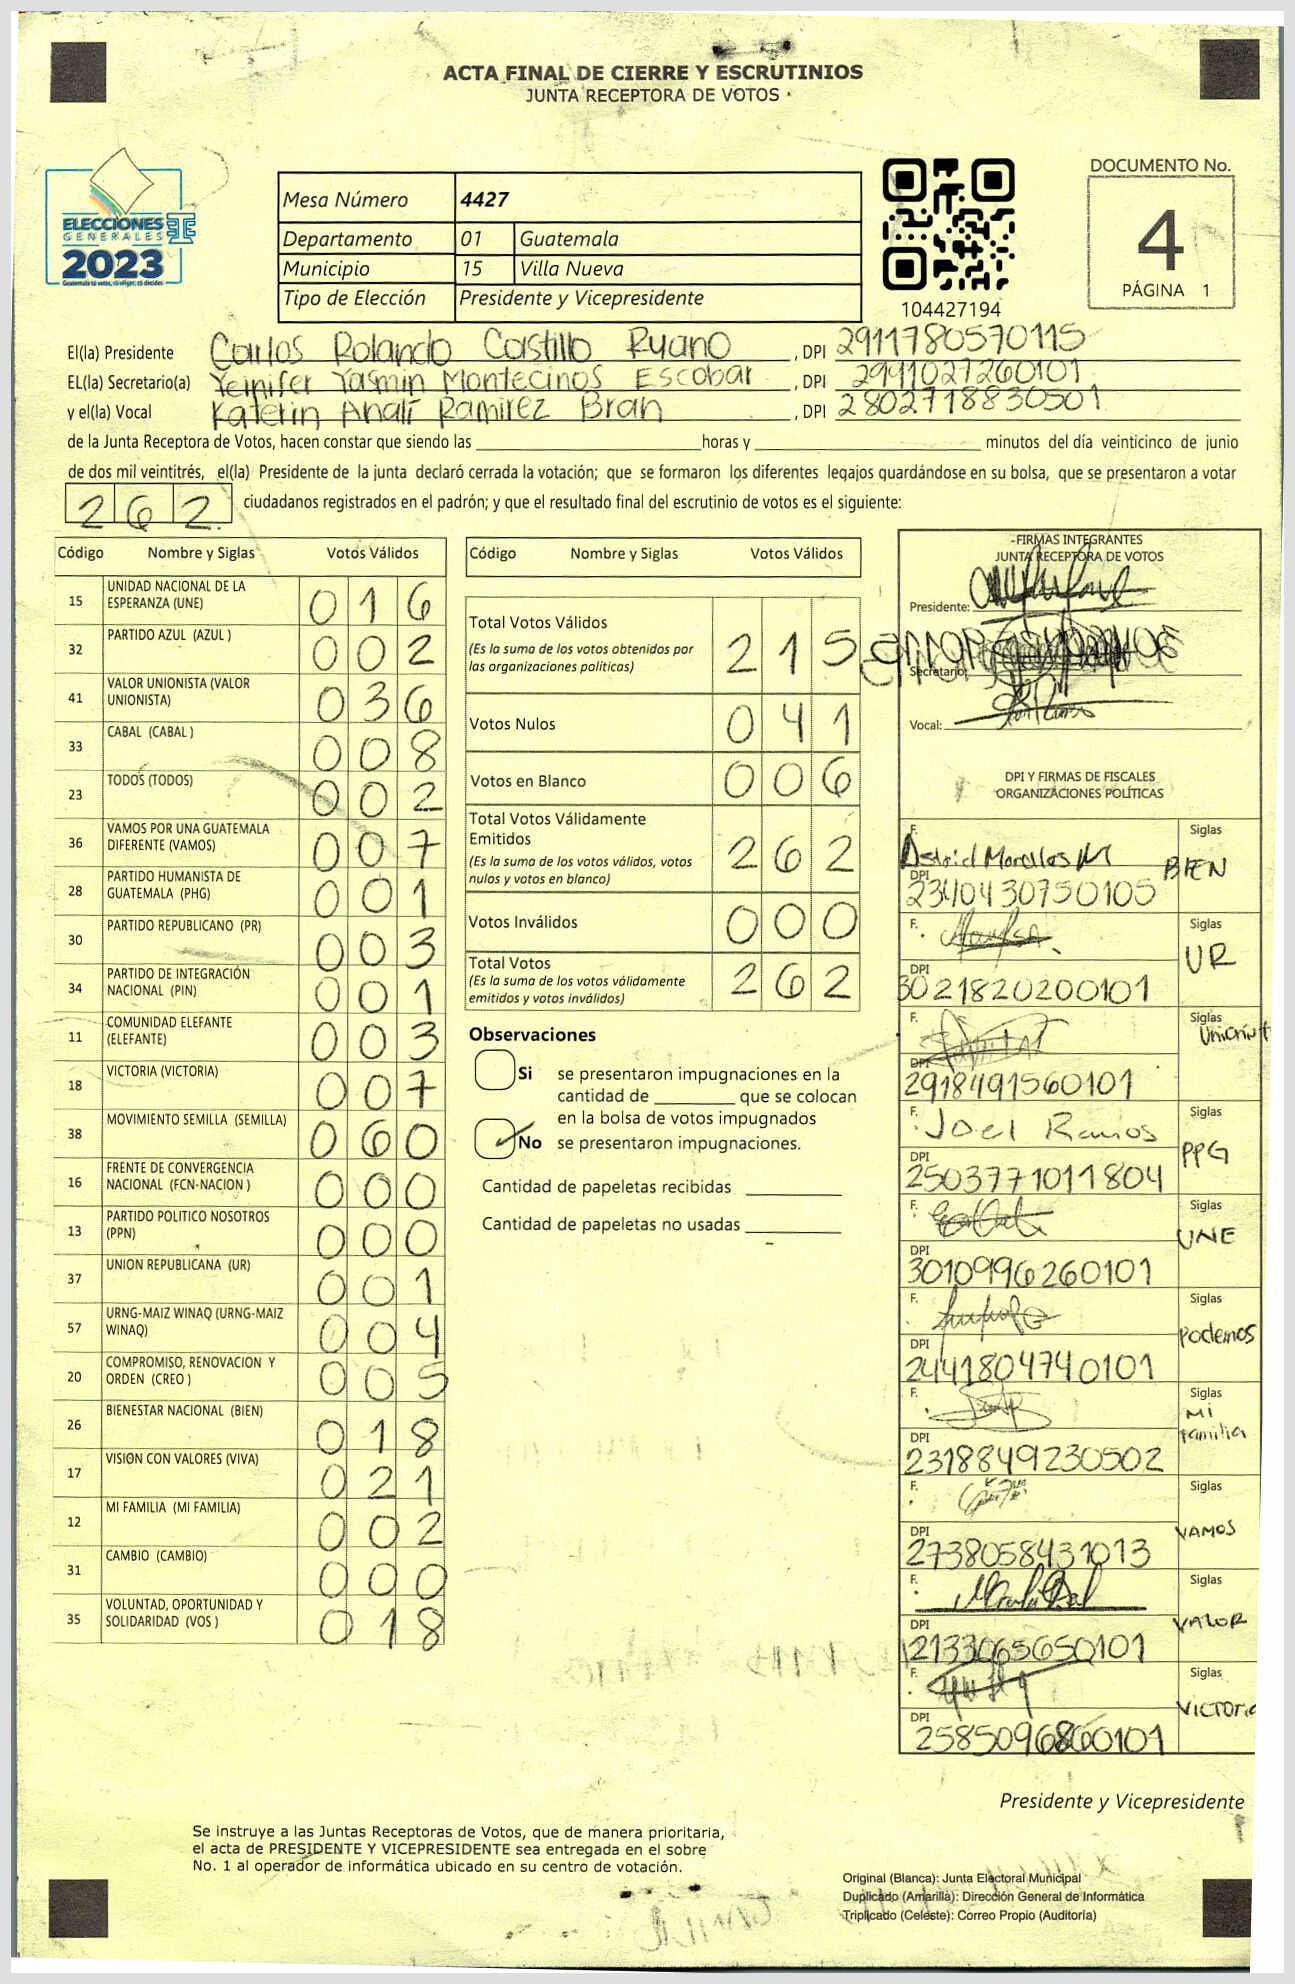 ACTA FINAL DE CIERRE Y ESCRUTINIOS
JUNTA RECEPTORA DE VOTOS
ELECCIONES
GENERALES
2023
Mesa Número 4427
Departamento 01 Guatemala
Municipio 15 Villa Nueva
Tipo de Elección Presidente y Vicepresidente
104427194
DOCUMENTO No.
4
PÁGINA 1
El(la) Presidente Carlos Rolando Castillo Ruano , DPI 2911780570115
EL(la) Secretario(a) Yeinifer Yasmin Montecinos Escobar , DPI 2941027260101
y el(la) Vocal Katerin Analí Ramirez Bran , DPI 2802718830501
de la Junta Receptora de Votos, hacen constar que siendo las horas y minutos del día veinticinco de junio
de dos mil veintitrés, el(la) Presidente de la junta declaró cerrada la votación; que se formaron los diferentes legajos quardándose en su bolsa, que se presentaron a votar
262 ciudadanos registrados en el padrón; y que el resultado final del escrutinio de votos es el siguiente:
Código Nombre y Siglas Votos Válidos
15 UNIDAD NACIONAL DE LA
ESPERANZA (UNE) 016
32 PARTIDO AZUL (AZUL ) 002
41 VALOR UNIONISTA (VALOR
UNIONISTA) 036
33 CABAL (CABAL ) 008
23 TODOS (TODOS) 002
36 VAMOS POR UNA GUATEMALA
DIFERENTE (VAMOS) 007
28 PARTIDO HUMANISTA DE
GUATEMALA (PHG) 001
30 PARTIDO REPUBLICANO (PR) 003
34 PARTIDO DE INTEGRACIÓN
NACIONAL (PIN) 001
11 COMUNIDAD ELEFANTE
(ELEFANTE) 003
18 VICTORIA (VICTORIA) 007
38 MOVIMIENTO SEMILLA (SEMILLA) 060
16 FRENTE DE CONVERGENCIA
NACIONAL (FCN-NACION ) 000
13 PARTIDO POLITICO NOSOTROS
(PPN) 000
37 UNION REPUBLICANA (UR) 001
57 URNG-MAIZ WINAQ (URNG-MAIZ
WINAQ) 004
20 COMPROMISO, RENOVACION Y
ORDEN (CREO ) 005
26 BIENESTAR NACIONAL (BIEN) 018
17 VISION CON VALORES (VIVA) 021
12 MI FAMILIA (MI FAMILIA) 002
31 CAMBIO (CAMBIO) 000
35 VOLUNTAD, OPORTUNIDAD Y
SOLIDARIDAD (VOS ) 018
Código Nombre y Siglas Votos Válidos
Total Votos Válidos 215
(Es la suma de los votos obtenidos por
las organizaciones políticas)
Votos Nulos 041
Votos en Blanco 006
Total Votos Válidamente
Emitidos 262
(Es la suma de los votos válidos, votos
nulos y votos en blanco)
Votos Inválidos 000
Total Votos 262
(Es la suma de los votos válidamente
emitidos y votos inválidos)
Observaciones
Si se presentaron impugnaciones en la
cantidad de que se colocan
en la bolsa de votos impugnados
No se presentaron impugnaciones.
Cantidad de papeletas recibidas
Cantidad de papeletas no usadas
FIRMAS INTEGRANTES
JUNTA RECEPTORA DE VOTOS
Presidente:
Secretario:
Vocal:
DPI Y FIRMAS DE FISCALES
ORGANIZACIONES POLÍTICAS
F. Astrid Morales M Siglas
BIEN
DPI
2340430750105
F. Siglas
UR
DPI
3021820200101
F. Siglas
DPI
2918491560101
F. Joel Ramos Siglas
PPG
DPI
2503771011804
F. Siglas
UNE
DPI
3010996260101
F. Siglas
Podemos
DPI
2441804740101
F. Siglas
Mi
Familia
DPI
2318849230502
F. Siglas
VAMOS
DPI
2738058431013
F. Siglas
VALOR
DPI
2133065650101
F. Siglas
VICTORIA
DPI
2585096860101
Presidente y Vicepresidente
Se instruye a las Juntas Receptoras de Votos, que de manera prioritaria,
el acta de PRESIDENTE Y VICEPRESIDENTE sea entregada en el sobre
No. 1 al operador de informática ubicado en su centro de votación.
Original (Blanca): Junta Electoral Municipal
Duplicado (Amarilla): Dirección General de Informática
Triplicado (Celeste): Correo Propio (Auditoría)